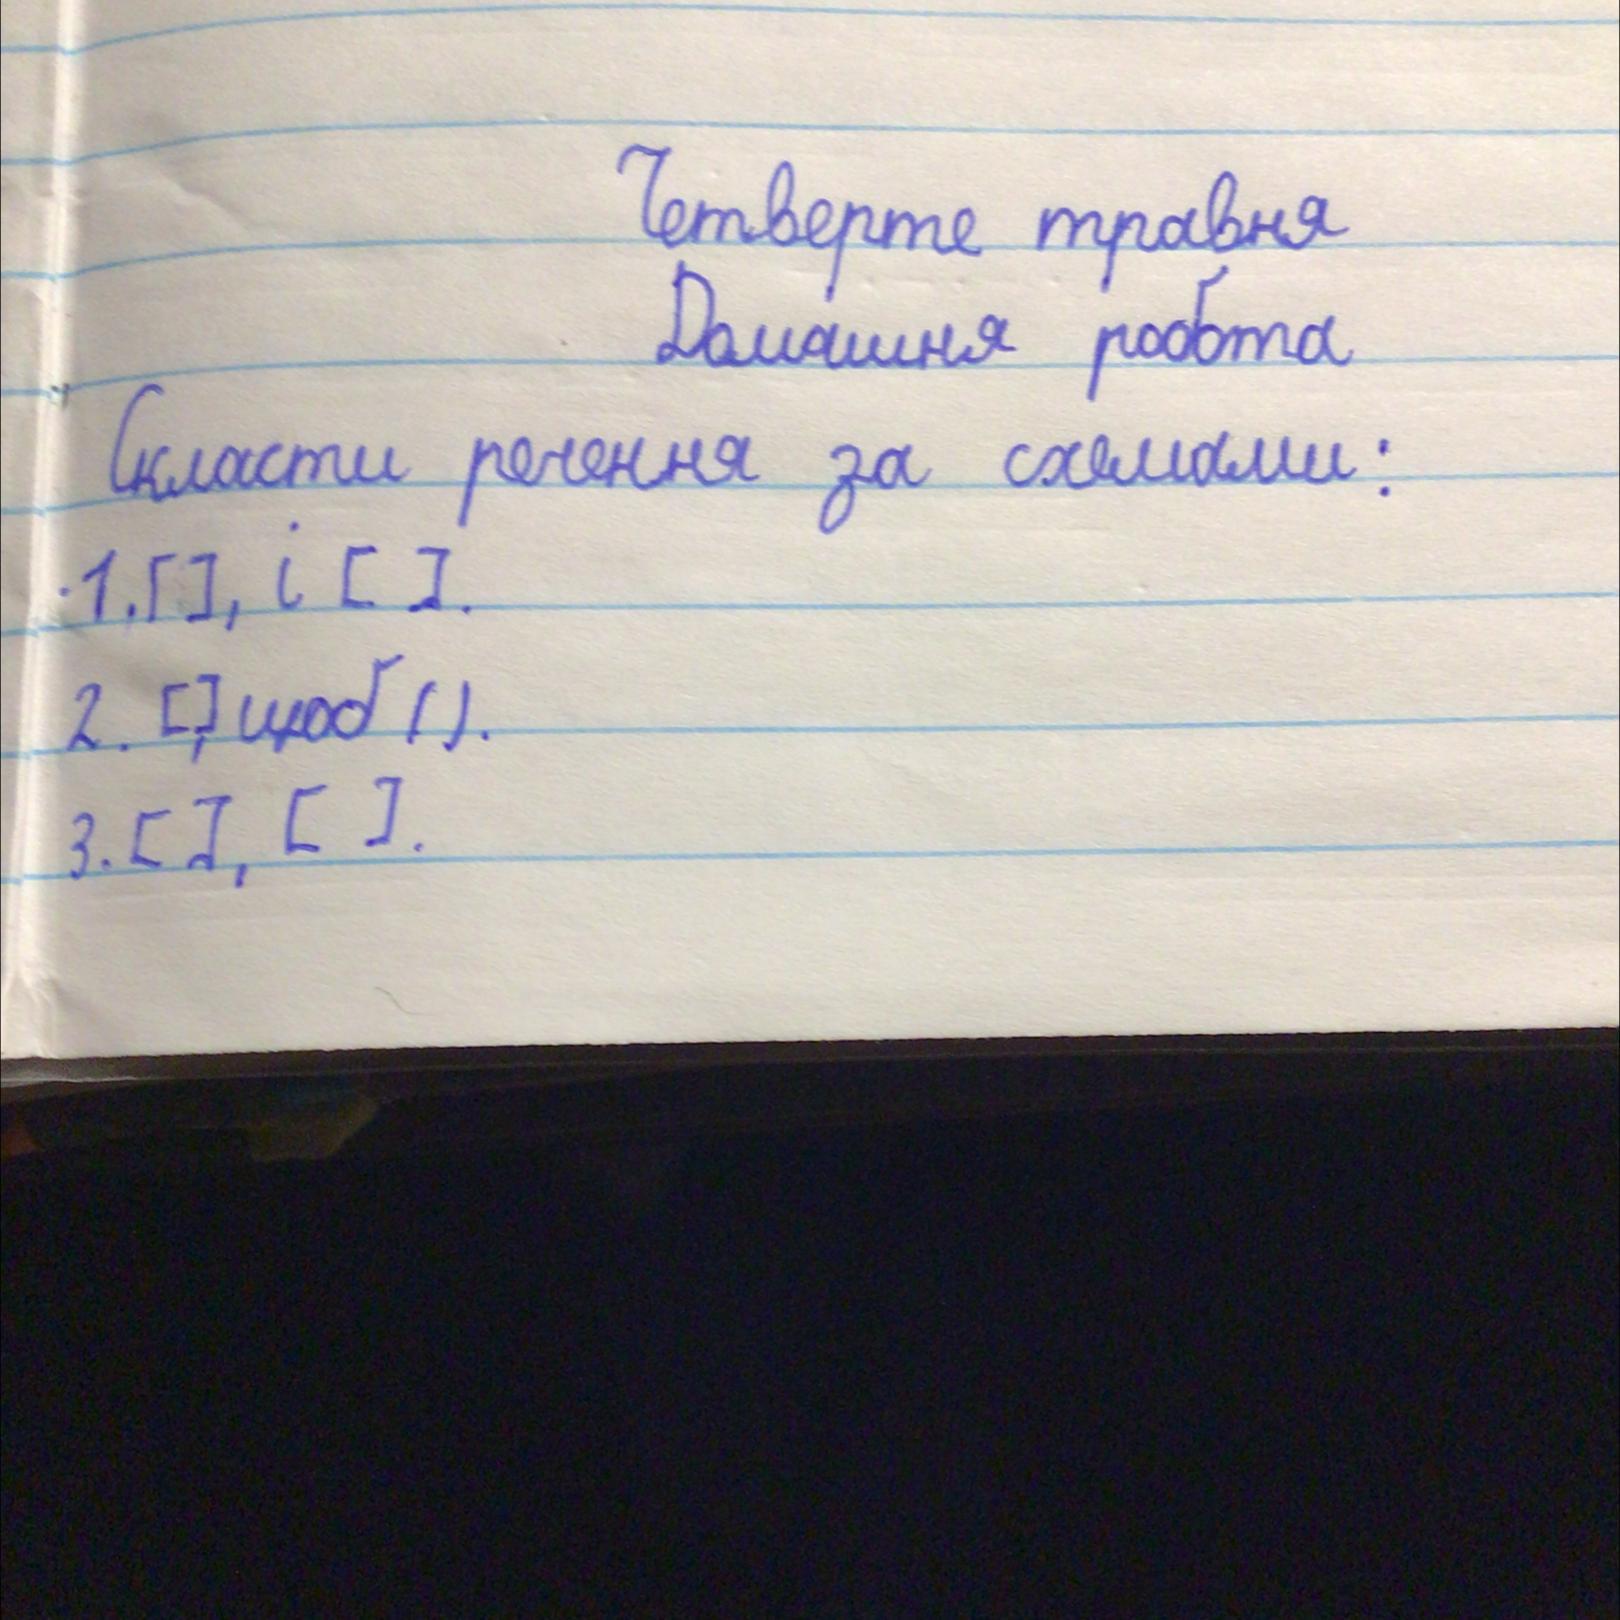 Четверте травня
Домашня робота
Скласти речення за схемами:
1. [ ], і [ ].
2. [ ], щоб ( ).
3. [ ], [ ].